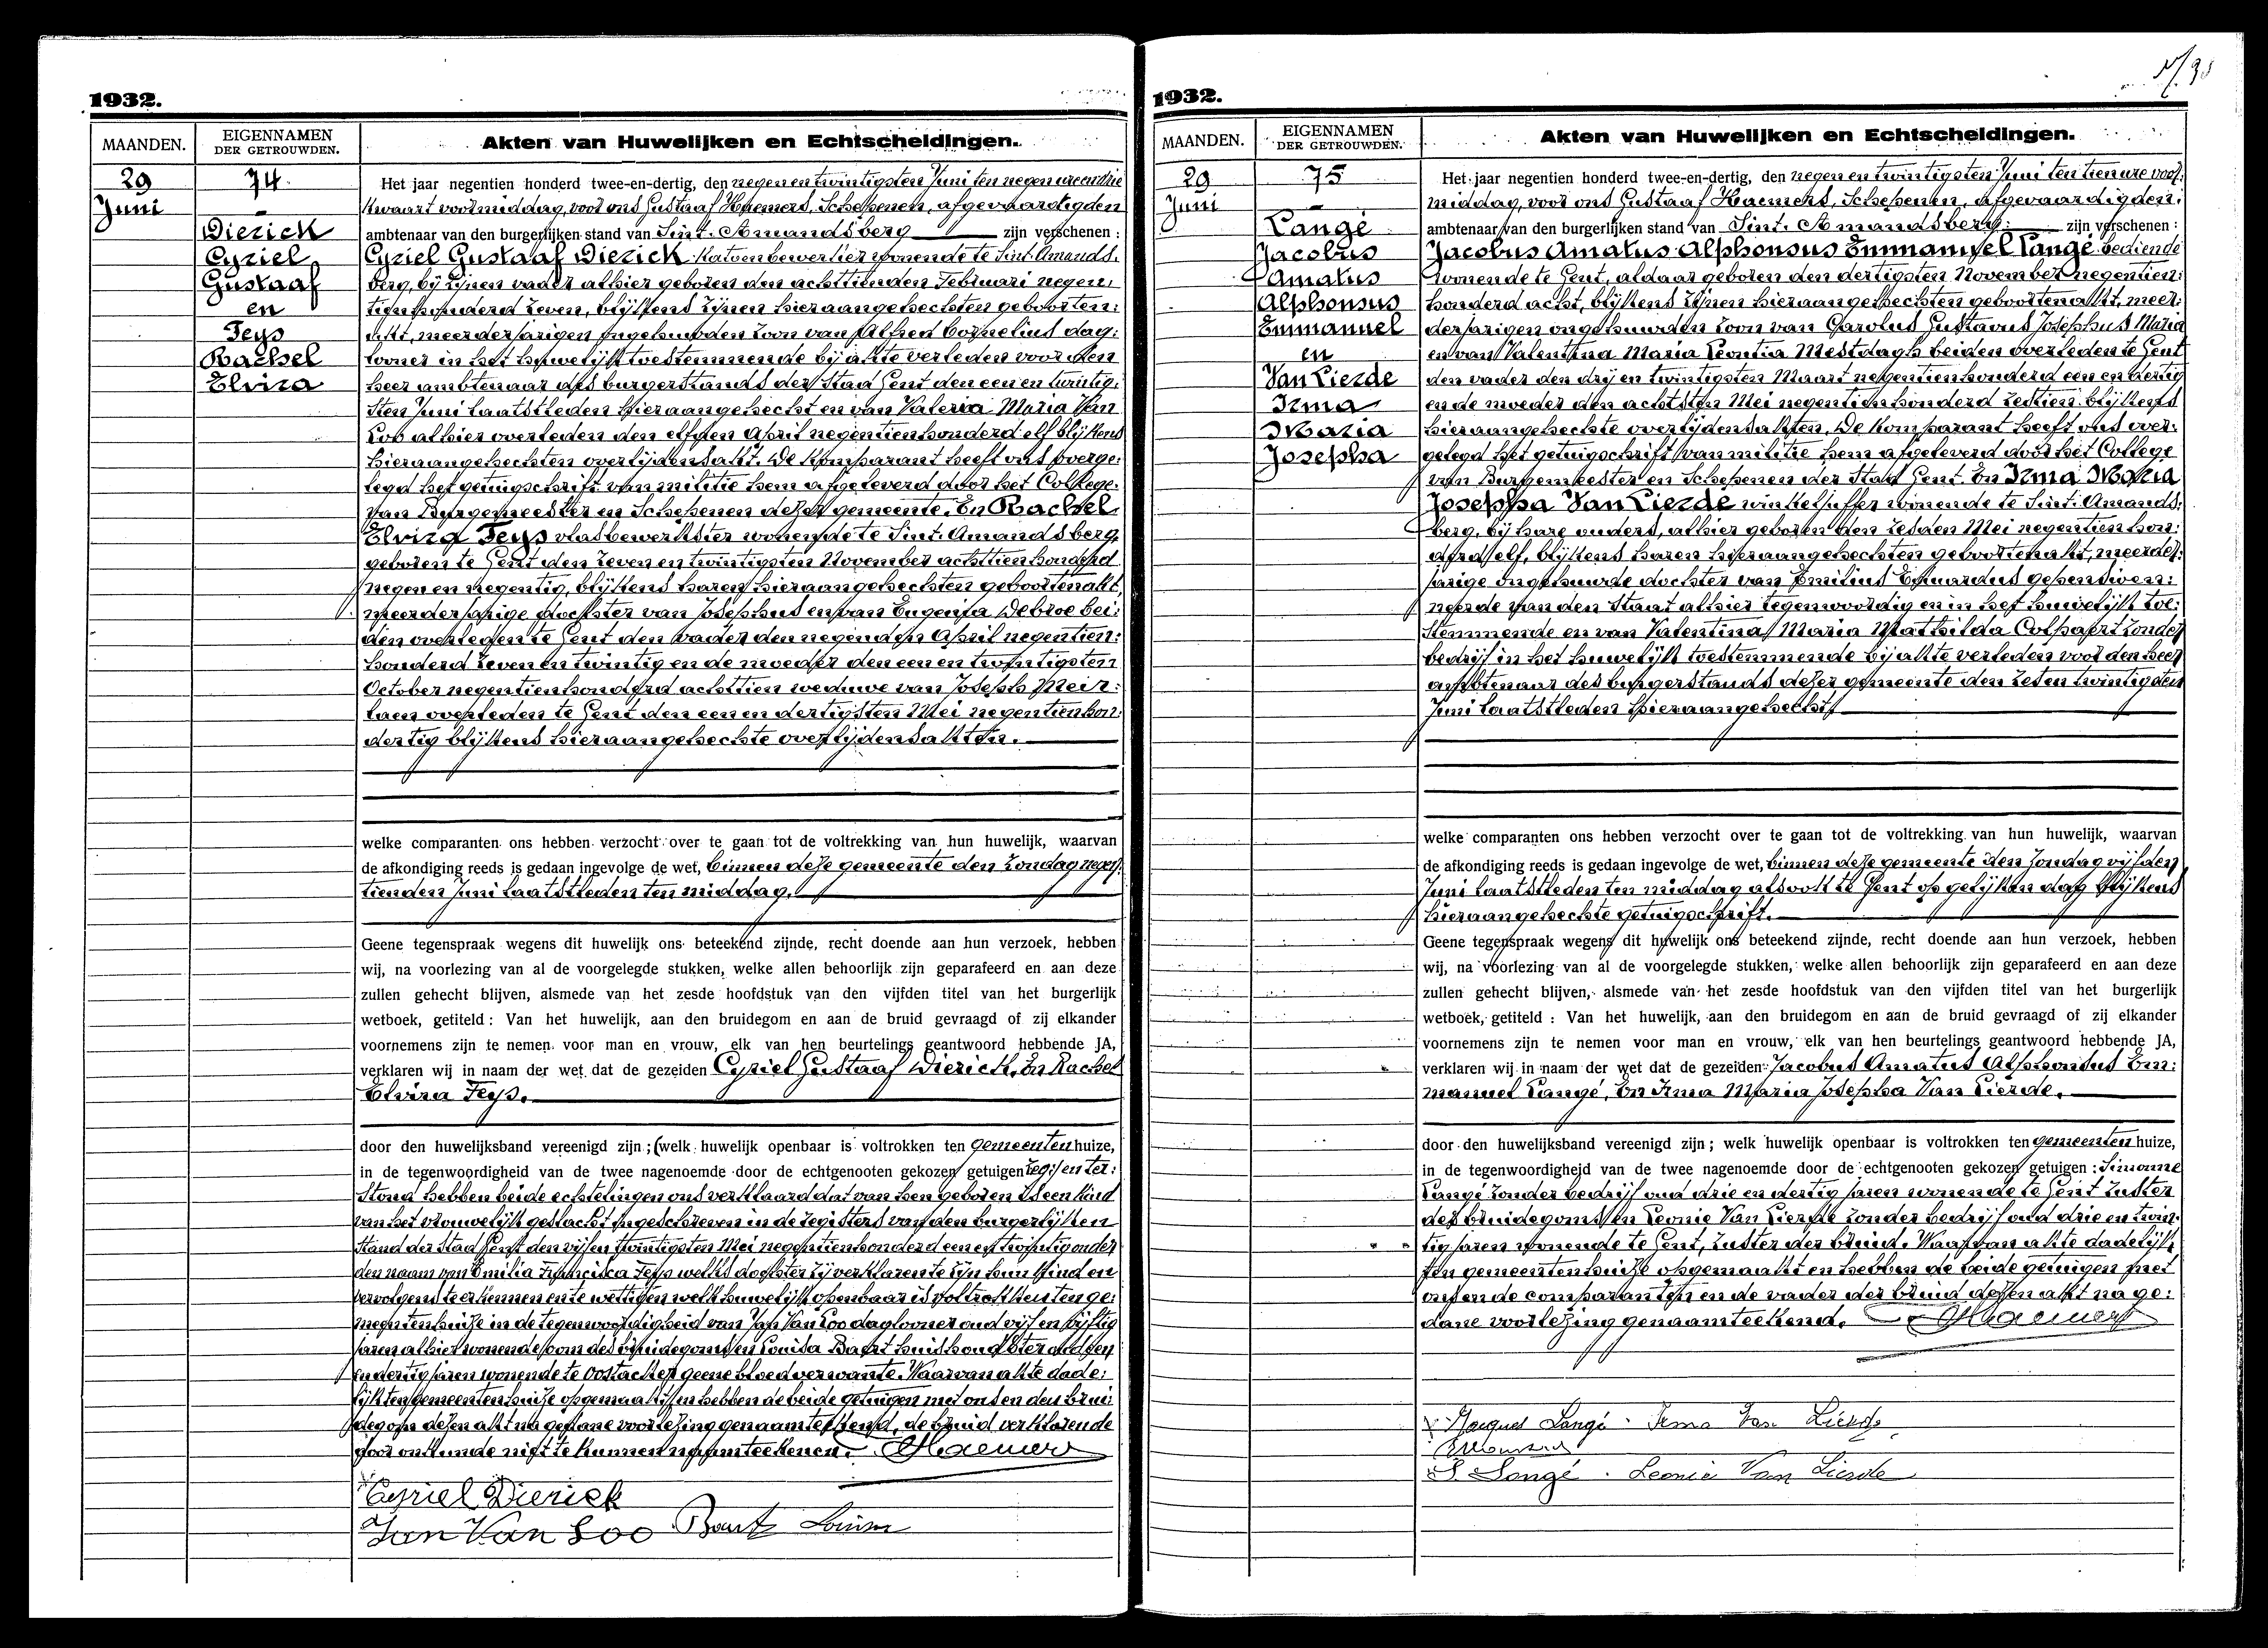 1932.
MAANDEN.
EIGENNAMEN
DER GETROUWDEN.
Akten van Huwelijken en Echtscheidingen.
29
Juni
74
Dierick
Cyriel
Gustaaf
en
Feys
Rachel
Elvira
Het jaar negentien honderd twee-en-dertig, den negen en twintigsten Juni ten negen ure en drie
kwaart voormiddag, voor ons Gustaaf Haemers, Schepenen, afgevaardigden
ambtenaar van den burgerlijken stand van Sint-Amandsberg zijn verschenen :
Cyriel Gustaaf Dierick katoenbewerker wonende te Sint-Amands-
berg, bij zijnen vader alhier geboren den achttienden Februari negen-
tien honderd zeven, blijkens zijnen hieraangehechten geboorten:
akt, meerderjarigen ongehuwden zoon van Alfred Cornelius dag:
looner in het huwelijk toestemmende bij akte verleden voor den
heer ambtenaar des burgerstands der Stad Gent den een en twintig-
sten Juni laatstleden hieraangehecht en van Valeria Maria Van
Loo alhier overleden den elfden April negentienhonderd elf blijkens
hieraangehechten overlijdensakt. De komparant heeft ons overge:
legd het getuigschrift van militie hem afgeleverd door het College
van Burgemeester en Schepenen dezer gemeente. En Rachel
Elvira Feys vlasbewerkster wonende te Sint-Amandsberg,
geboren te Gent den zeven en twintigsten November achttienhonderd
negen en negentig, blijkens haren hieraangehechten geboortenakt,
meerderjarige dochter van Josephus en van Eugenia Debroe bei:
den overleden te Gent den vader den negenden April negentien:
honderd zeven en twintig en de moeder den een en twintigsten
October negentienhonderd achttien weduwe van Joseph Meir:
laen overleden te Gent den een en dertigsten Mei negentienhon:
dertig blijkens hieraangehechte overlijdensakten.
welke comparanten ons hebben verzocht over te gaan tot de voltrekking van hun huwelijk, waarvan
de afkondiging reeds is gedaan ingevolge de wet, binnen deze gemeente den Zondag negen:
tienden Juni laatstleden ten middag.
Geene tegenspraak wegens dit huwelijk ons beteekend zijnde, recht doende aan hun verzoek, hebben
wij, na voorlezing van al de voorgelegde stukken, welke allen behoorlijk zijn geparafeerd en aan deze
zullen gehecht blijven, alsmede van het zesde hoofdstuk van den vijfden titel van het burgerlijk
wetboek, getiteld : Van het huwelijk, aan den bruidegom en aan de bruid gevraagd of zij elkander
voornemens zijn te nemen voor man en vrouw, elk van hen beurtelings geantwoord hebbende JA,
verklaren wij in naam der wet dat de gezeiden Cyriel Gustaaf Dierick. En Rachel
Elvira Feys.
door den huwelijksband vereenigd zijn ; (welk huwelijk openbaar is voltrokken ten gemeentenhuize,
in de tegenwoordigheid van de twee nagenoemde door de echtgenooten gekozen getuigen
Stond hebben beide echtelingen ons verklaard dat van hen geboren is een kind
van het vrouwelijk geslacht ingeschreven in de registers van den burgerlijken
Stand der Stad Gent den vijf en twintigsten Mei negentienhonderd een en twintig onder
den naam van Emilia Francisca Feys welke dochter zij verklaren te zijn hun kind en
vervolgens te erkennen en te wettigen welk huwelijk openbaar is voltrokken ten ge:
meentenhuize in de tegenwoordigheid van Jan Van Loo daglooner oud vijf en vijftig
jaren alhier wonende oom des bruidegoms en Louisa Baert huishoudster oud
en dertig jaren wonende te Oostacker geene bloedverwante. Waarvan akte dade:
lijk ten gemeentenhuize opgemaakt en hebben de beide getuigen met ons en den brui:
degom dezen akt na gedane voorlezing genaamteekend, de bruid verklarende
door onkunde niet te kunnen naamteekenen. GHaemers
Cyriel Dierick
Jan Van Loo Baert Louisa
1932.
MAANDEN.
EIGENNAMEN
DER GETROUWDEN.
Akten van Huwelijken en Echtscheidingen.
29
Juni
75
Langé
Jacobus
Amatus
Alphonsus
Emmanuel
en
Van Lierde
Irma
Maria
Josepha
Het jaar negentien honderd twee-en-dertig, den negen en twintigsten Juni ten tien ure voor:
middag, voor ons Gustaaf Haemers, Schepenen, afgevaardigden.
ambtenaar van den burgerlijken stand van Sint-Amandsberg. zijn verschenen :
Jacobus Amatus Alphonsus Emmanuel Langé bediende
wonende te Gent, aldaar geboren den dertigsten November negentien:
honderd acht, blijkens zijnen hieraangehechten geboortenakt, meer:
derjarigen ongehuwden zoon van Carolus Gustavus Josephus Maria
en van Valentina Maria Leontia Mestdagh beiden overleden te Gent
den vader den drij en twintigsten Maart negentienhonderd een en dertig
en de moeder den achtsten Mei negentienhonderd zestien blijkens
hieraangehechte overlijdensakten. De komparant heeft ons over:
gelegd het getuigschrift van militie hem afgeleverd door het College
van Burgemeester en Schepenen der Stad Gent. En Irma Maria
Josepha Van Lierde winkeljuffer wonende te Sint-Amands:
berg, bij hare ouders, alhier geboren den zesden Mei negentien hon:
derd elf, blijkens haren hieraangehechten geboortenakt, meerder:
jarige ongehuwde dochter van Emilius Eduardus gepensioen:
neerde van den Staat alhier tegenwoordig en in het huwelijk toe:
stemmende en van Valentina Maria Mathilda Colpaert zonder
bedrijf in het huwelijk toestemmende bij akte verleden voor den heer
ambtenaar des burgerstands dezer gemeente den zes en twintigden
Juni laatstleden hieraangehecht
welke comparanten ons hebben verzocht over te gaan tot de voltrekking van hun huwelijk, waarvan
de afkondiging reeds is gedaan ingevolge de wet, binnen deze gemeente den Zondag vijfden
Juni laatstleden ten middag alsook te Gent op gelijken dag blijkens
hieraangehechte getuigschrift.
Geene tegenspraak wegens dit huwelijk ons beteekend zijnde, recht doende aan hun verzoek, hebben
wij, na voorlezing van al de voorgelegde stukken, welke allen behoorlijk zijn geparafeerd en aan deze
zullen gehecht blijven, alsmede van het zesde hoofdstuk van den vijfden titel van het burgerlijk
wetboek, getiteld : Van het huwelijk, aan den bruidegom en aan de bruid gevraagd of zij elkander
voornemens zijn te nemen voor man en vrouw, elk van hen beurtelings geantwoord hebbende JA,
verklaren wij in naam der wet dat de gezeiden Jacobus Amatus Alphonsus Em:
manuel Langé, En Irma Maria Josepha Van Lierde.
door den huwelijksband vereenigd zijn ; welk huwelijk openbaar is voltrokken ten gemeentenhuize,
in de tegenwoordigheid van de twee nagenoemde door de echtgenooten gekozen getuigen : Simonne
Langé zonder bedrijf oud drie en dertig jaren wonende te Gent zuster
des bruidegoms en Leonie Van Lierde zonder bedrijf oud drie en twin-
tig jaren wonende te Gent, zuster der bruid. Waarvan akte dadelijk
ten gemeentenhuize opgemaakt en hebben de beide getuigen met
ons en de comparanten en de vader der bruid dezen akt na ge:
dane voorlezing genaamteekend. GHaemers
Jacques Langé. Irma Van Lierde
S. Langé. Leonie Van Lierde